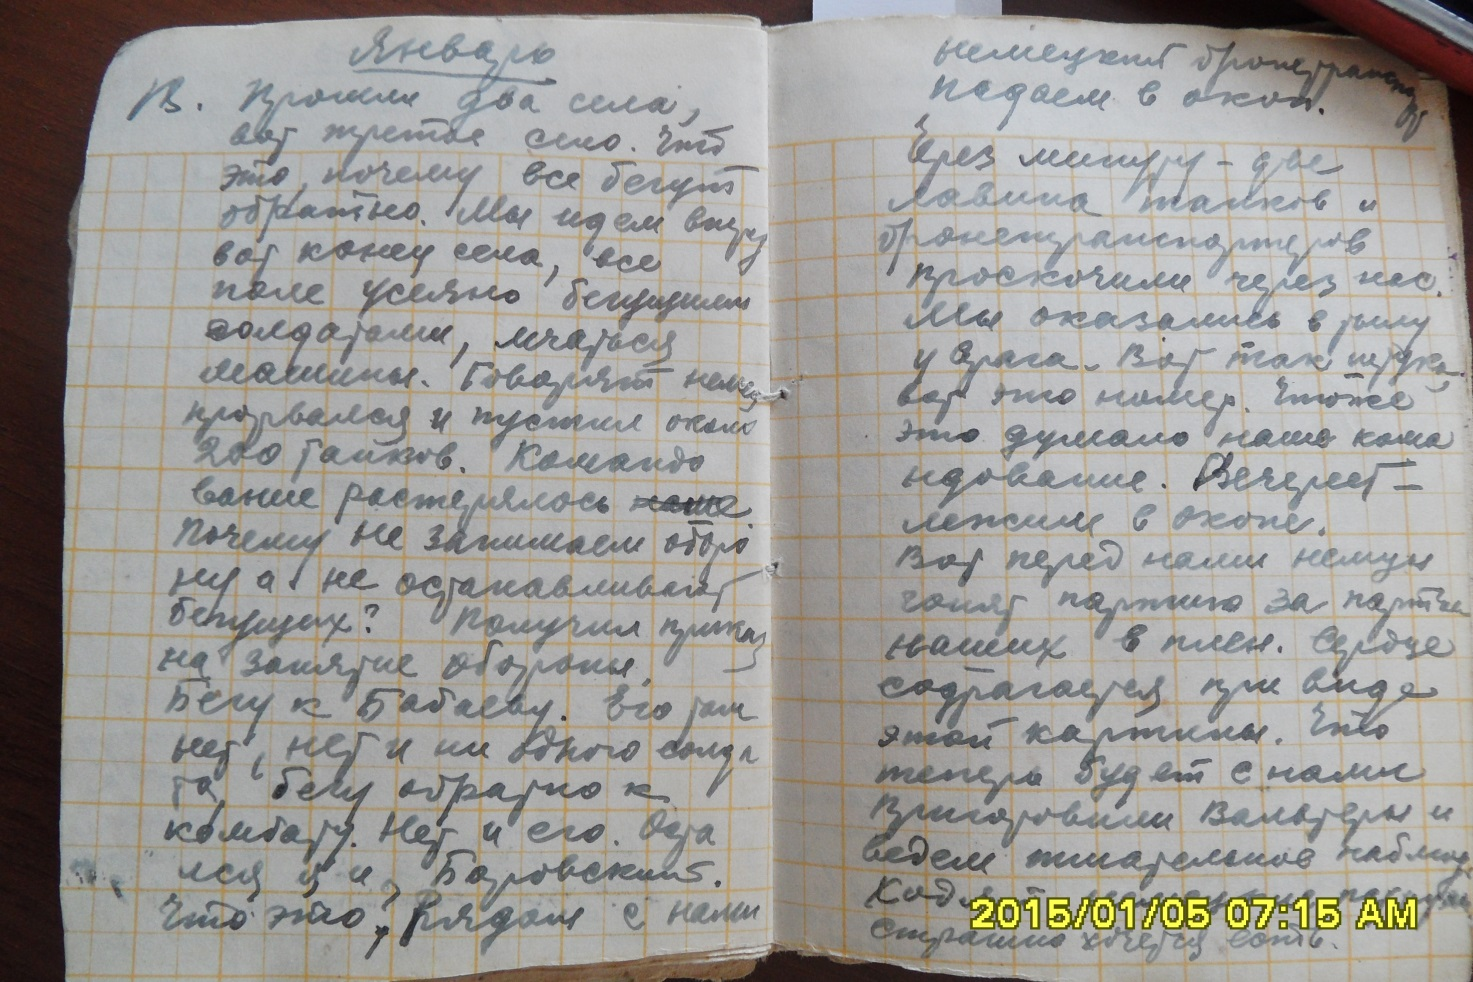 Январь
18. Прошли два села,
вот третье село. Что
это, почему все бегут
обратно. Мы идем впред
вот конец села, все
поле усеяно бегущими
солдатами, мчаться
машины. Говорят немец
прорвался и пустил около
200 танков. Командо
вание растерялось наше.
Почему не занимаем оборо
ну а не останавливают
бегущих? Получил приказ
на занятие обороны,
Бегу к Бабаеву. Его там
нет, нет и ни одного солда
та, бегу обратно к
комбату. Нет и его. Оста
лся я и, Боровский.
Что это, Рядом с нами
немецкий бронетранспорт
падаем в окоп.
Через минуту - две
лавина танков и
бронетранспортеров
проскочили через нас.
Мы оказались в тылу
у врага. Вот так штука,
вот это номер. Чтоже
это думало наше кома
ндование. Вечереет -
лежим в окопе.
Вот перед нами немцы
гонят партию за партией
наших в плен. Сердце
содрагается при виде
этой картины. Что
теперь будет с нами
Приготовили Вальтеры и
ведем тщательное наблюд
Ходят
страшно хочется есть.
2015/01/05 07:15 AM